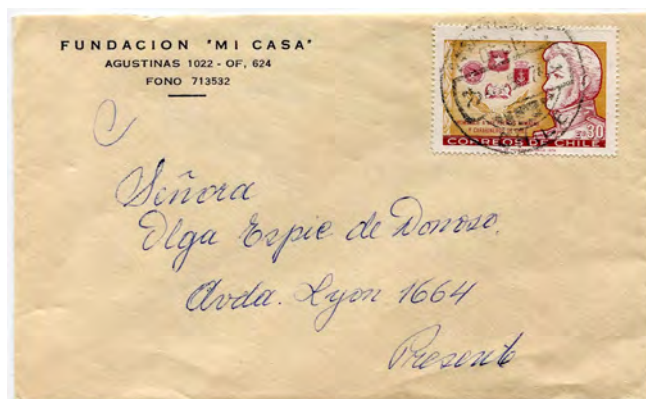 FUNDACION "MI CASA"
AGUSTINAS 1022 - OF, 624
FONO 713532
30
CORREOS DE CHILE
Señora
Olga Espic de Donoso.
Avda. Lyon 1664
Presente